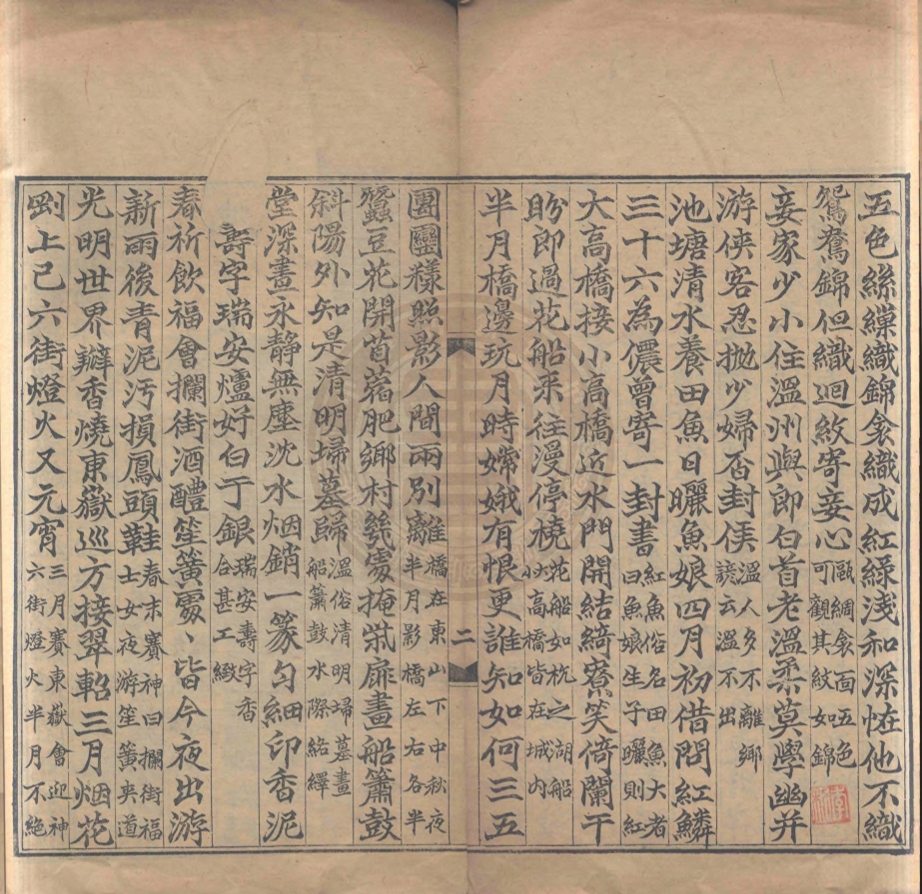 五色絲繰織錦衾織成紅綠淺和深恠他不織
鴛鴦錦但織迴紋寄妾心甌綢衾面五色可觀其紋如錦
妾家少小住溫州與郎白首老溫柔莫學幽并
游俠客忍拋少婦否封侯溫人多不離鄉諺云溫不出
池塘清水養田魚日曬魚娘四月初借問紅鱗
三十六為儂曾寄一封書紅魚俗名田魚大者曰魚娘生子曬則紅
大高橋接小高橋近水門開結綺寮笑倚闌干
盼郎過花船來往漫停橈花船如杭之湖船大小高橋皆在城內
半月橋邊玩月時嫦娥有恨更誰知如何三五
二
團圞樣照影人間兩別離橋在東山下中秋夜半月影橋左右各半
蠶豆花開苜蓿肥鄉村幾處掩柴扉畫船簫鼓
斜陽外知是清明埽墓歸溫俗清明埽墓畫船簫鼓水際絡繹
堂深晝永靜無塵沈水烟銷一篆勻細印香泥
壽字瑞安爐好白于銀瑞安壽字香合甚工緻
春祈飲福會攔街酒醴笙簧處、皆今夜出游
新雨後青泥污損鳳頭鞋春末賽神曰攔街福士女夜游笙簧夾道
光明世界瓣香燒東嶽巡方接翠軺三月烟花
剛上巳六街燈火又元宵三月賽東嶽會迎神六街燈火半月不絶